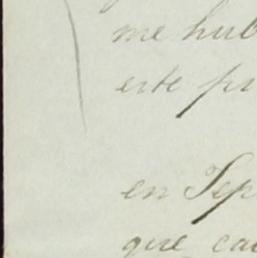 me hub
este pr
en Sep
que ca